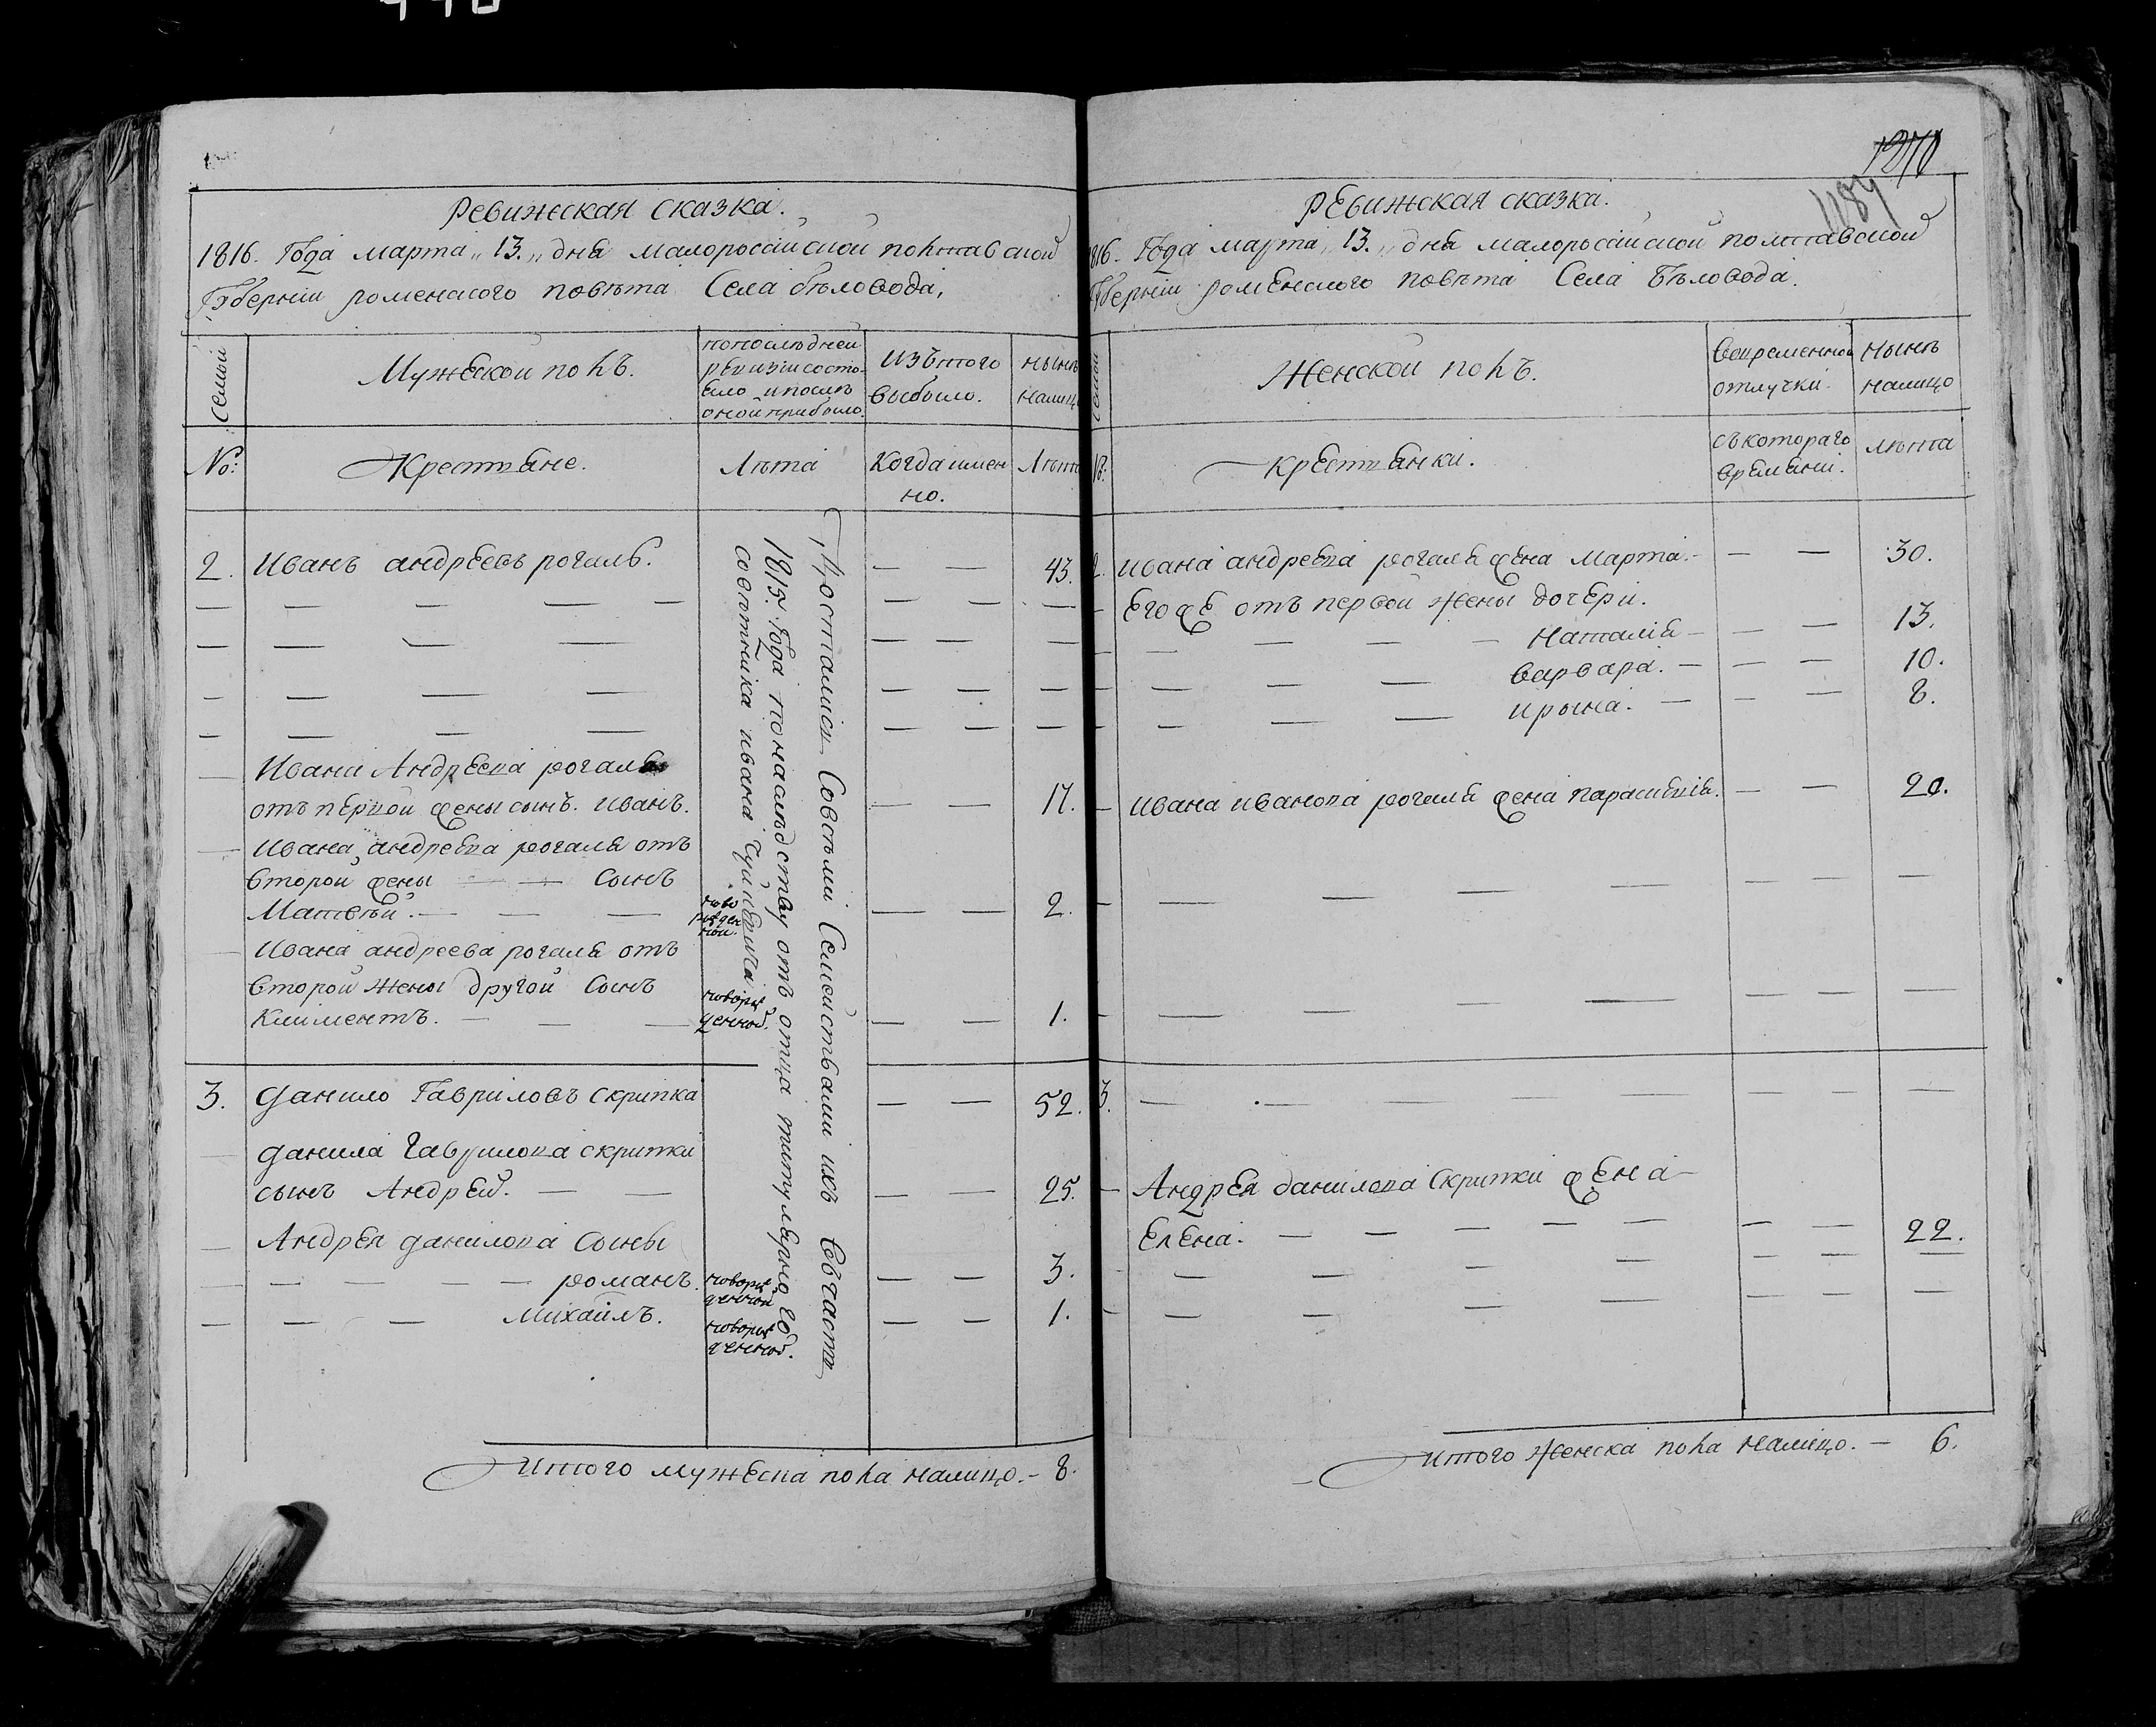 Ревижская сказка.
1816. Года марта „13.„ дня малоросайской полтавской
Губерніи роменского повѣта Села бѣловода,
Семьи
Мужеской полъ.
попослѣдней
ревизіи состо-
яло и послѣ
оной прибыло.
Изътого
выбыло.
нынѣ
налицо
№:
Крестьяне.
Лѣта
Когда имен
но.
Лѣта
2. Иванъ андреевъ рогаль. — — 43.
Ивана Андреева рогаля
отъ первой жены сынъ. Иванъ. — — 17.
Ивана андреева рогаля отъ
второй жены — — Сынъ
Матвѣй. — — — ново рожден ной. — — 2.
Ивана андреева рогаля отъ
второй жены другой Сынъ
Климентъ. — — — новорож денной. — — 1.
3. Данило Гавриловъ скрипка — — 52.
Данила Гаврилова скрипки
сынъ Андрей. — — — — 25.
Андрея данилова Сыны
— — — — романъ. новорож денной — — 3.
— — — Михайлъ. новорож денной. — — 1.
Досталися Совсѣми Семействами ихъ Вѣчасти
1815. Года понаслѣдству отъ отца титулярного
Советника ивана
Итого мужеска пола налицо. — 8.
1270
1184
Ревижская сказка.
1816. Года марта „13.„ дня малоросійской полтавской
Губерніи роменского повѣта Села Бѣловода.
Семьи
Женской полъ.
Вовременной
отлучки.
Нынѣ
налицо
№:
Крестьянки.
съкотораго
времани.
лѣта
2. Ивана андреева рогаля жена Марта. — — — 30.
Его же отъ первой жены дочери.
— — — — Наталія — — — 13.
— — — Варвара. — — — 10.
— — — Ирына. — — — 8.
— Ивана иванова рогаля жена параскевія. — — 20.
3.
— Андрея данилова Скрипки жена
Елена. — — — — — — — 22.
Итого Женска пола налицо. — 6.